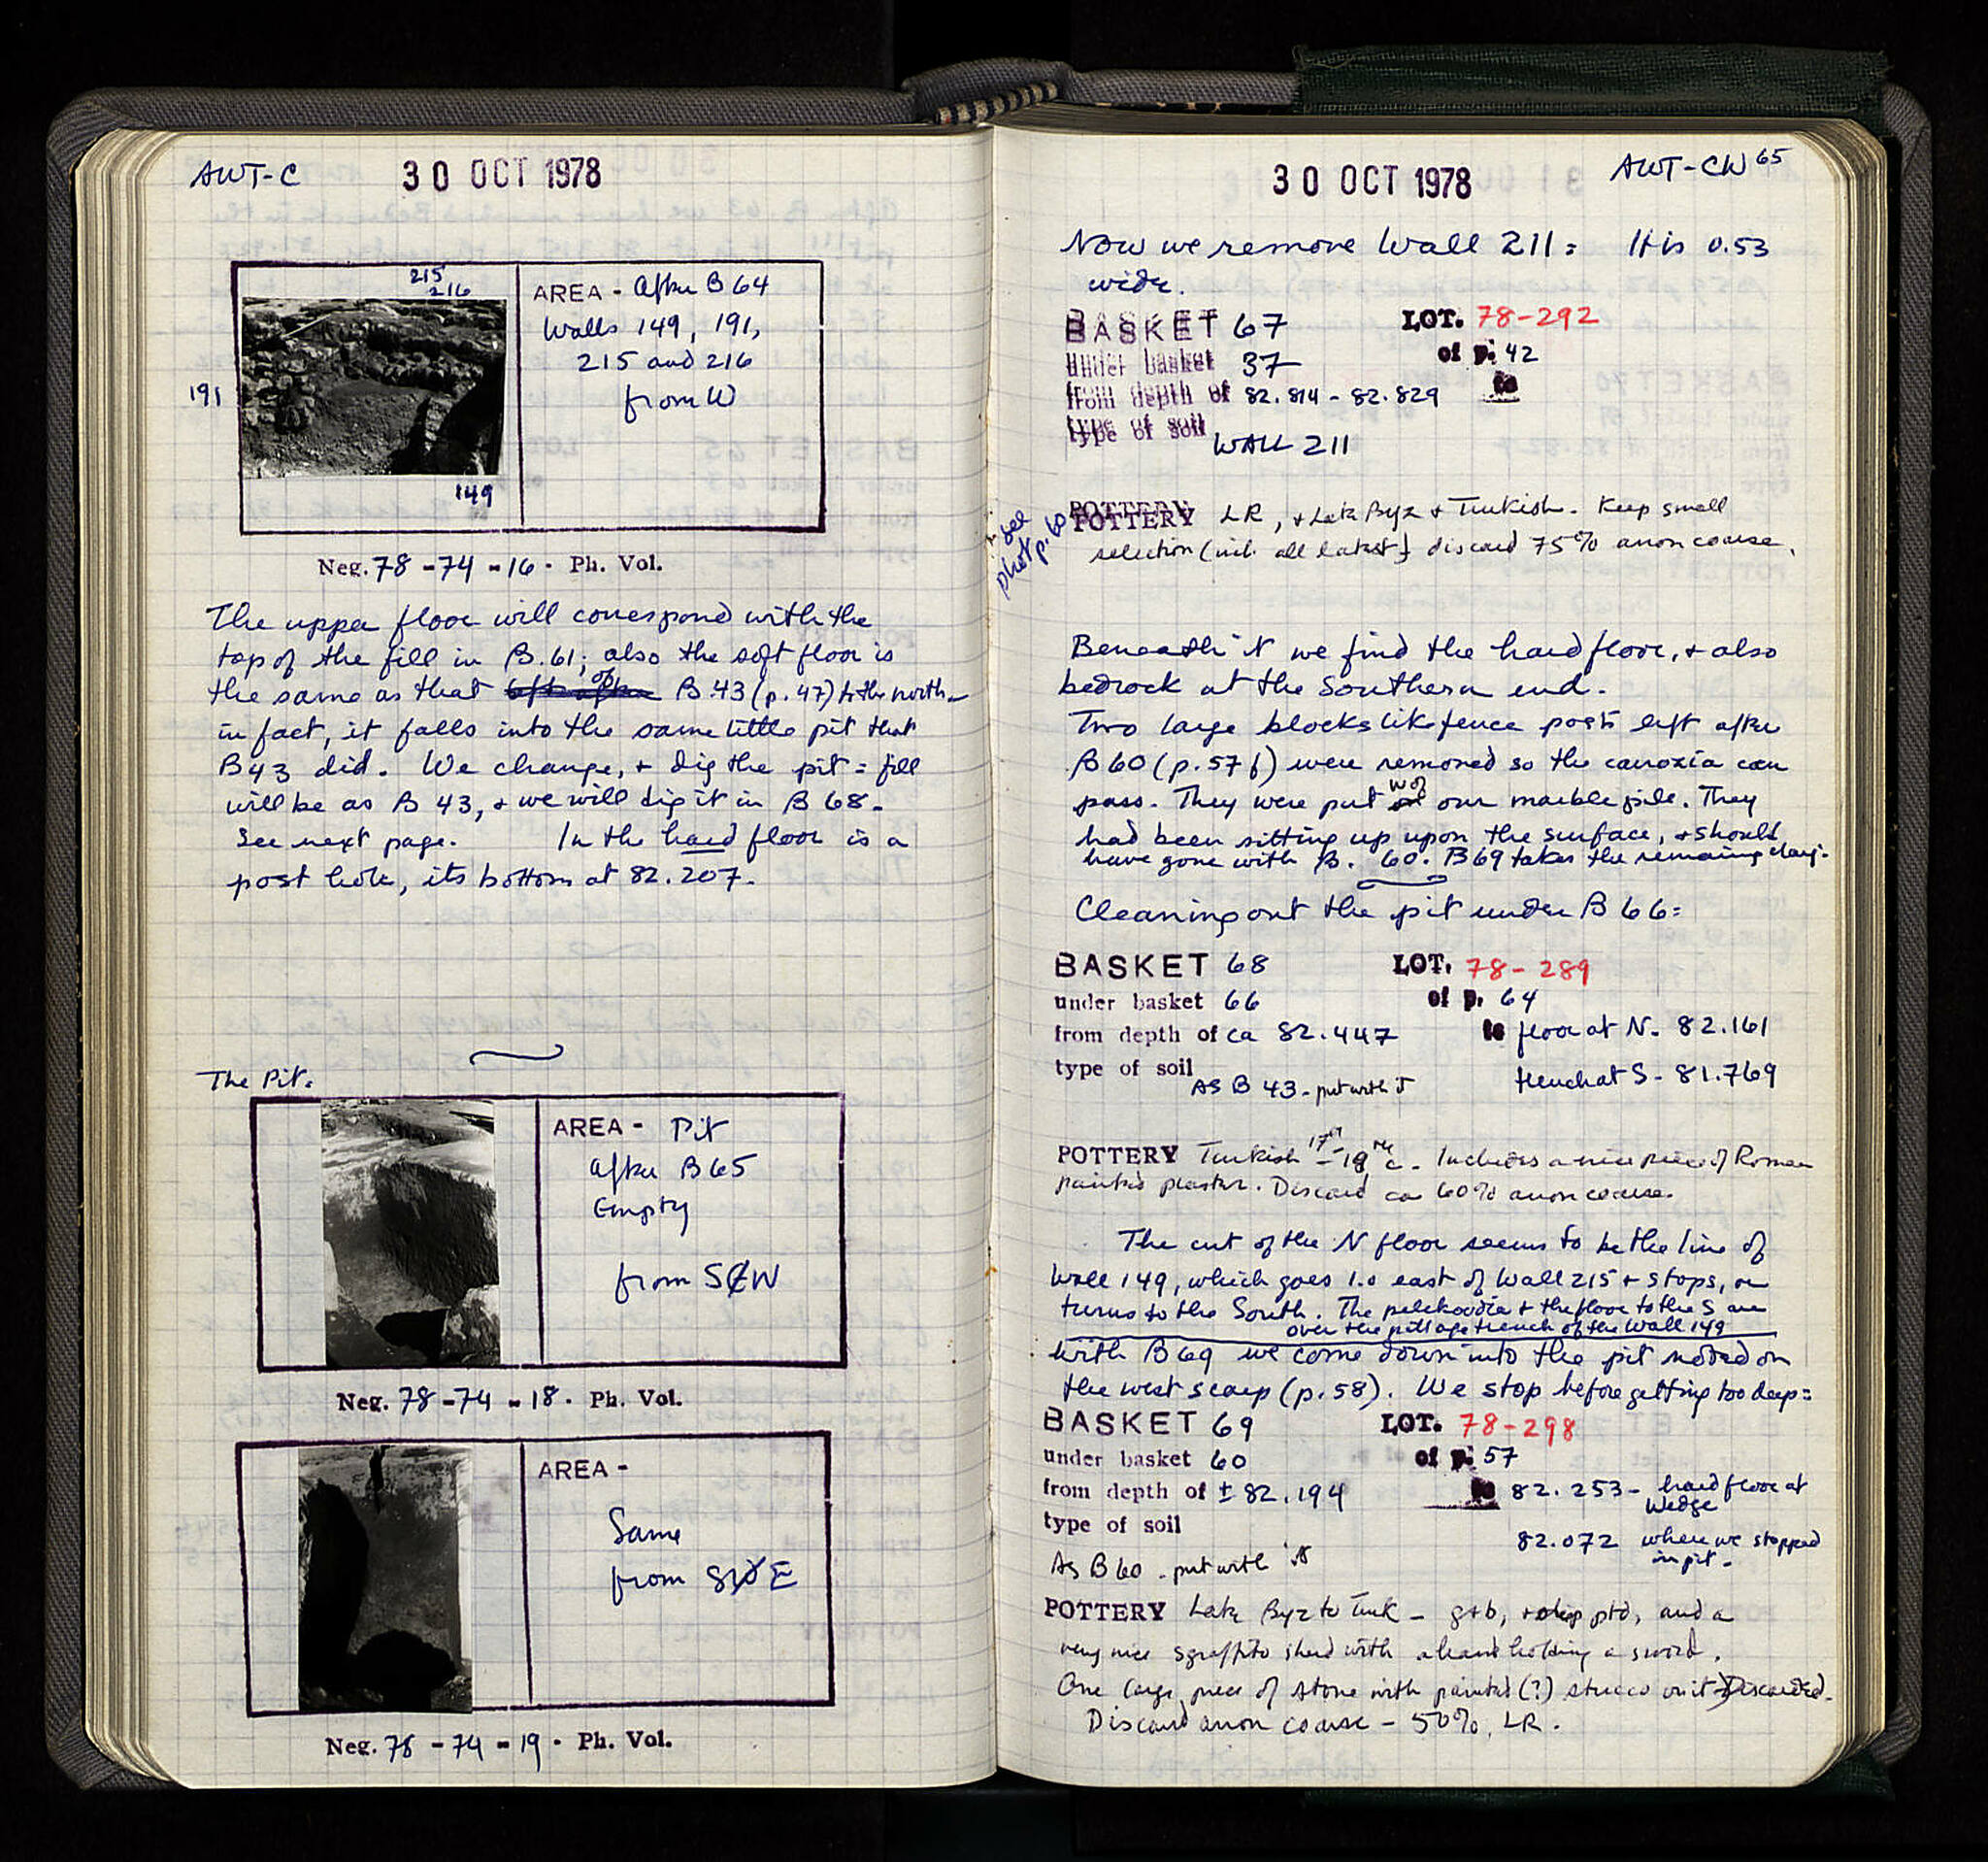 AWT-C 30 OCT 1978
215
216
191
149
AREA - After B 64
Walls 149, 191,
215 and 216
from W
Neg. 78-74-16. Ph. Vol.
The upper floor will correspond with the
top of the fill in B.61; also the soft floor is
the same as that of B 43 (p. 47) to the north -
in fact, it falls into the same little pit that
B43 did. We change, + dig the pit = fill
will be as B 43, + we will dig it in B 68 -
See next page. In the hard floor is a
post hole, its bottom at 82.207.
The Pit.
AREA - Pit
After B65
Empty
from SW
Neg. 78-74-18. Ph. Vol.
AREA -
Same
from SE
Neg. 78-74-19. Ph. Vol.
30 OCT 1978 AWT-CW 65
Now we remove Wall 211: It is 0.53
wide.
BASKET 67 LOT. 78-292
under basket 37 of p. 42
from depth of 82.814 - 82.829 to
type of soil WALL 211
see
phot p. 60
POTTERY LR, + Late Byz + Turkish. Keep small
selection (incl. all latest) discard 75% anon coarse.
Beneath it we find the hard floor, + also
bedrock at the Southern end.
Two large blocks like fence posts left after
B 60 (p. 57 f) were removed so the caroxia can
pass. They were put W of our marble pile. They
had been sitting up upon the surface, + should
have gone with B. 60. B69 takes the remaining
Cleaning out the pit under B 66:
BASKET 68 LOT. 78-289
under basket 66 of p. 64
from depth of ca 82.447 to floor at N - 82.161
type of soil trench at S - 81.769
AS B 43 - put with it
POTTERY Turkish 17th - 19th c. Includes a nice piece of Roman
painted plaster. Discard ca 60% anon coarse.
The cut of the N floor seems to be the line of
Wall 149, which goes 1.0 east of Wall 215 + stops, or
turns to the South. The pelekoudia + the floor to the S are
over the pillage trench of the Wall 149
With B69 we come down into the pit noted on
the west scarp (p. 58). We stop before getting too deep:
BASKET 69 LOT. 78-298
under basket 60 of p. 57
from depth of ± 82.194 to 82.253 - hard floor at
Wedge
type of soil 82.072 where we stopped
in pit -
As B 60 - put with it
POTTERY Late Byz to Turk - g+b, + slip ptd, and a
very nice sgraffito sherd with a hand holding a sword.
One large piece of stone with painted (?) stucco on it Discarded.
Discard anon coarse - 50%, LR.